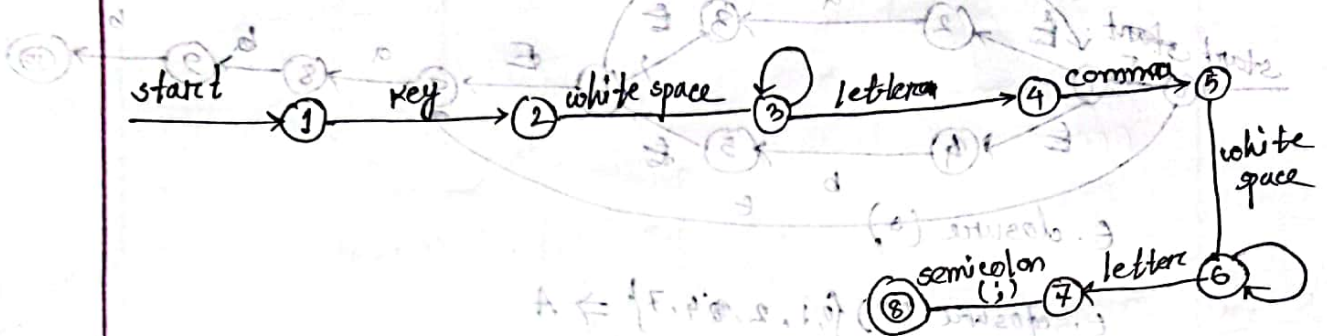 start 1 key 2 white space 3 letter 4 comma 5
white
space
6 letter 7 semicolon
(;) 8